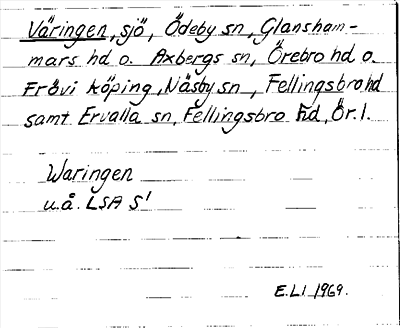 Väringen, sjö, Ödeby sn, Glansham-
mars hd o. Axbergs sn, Örebro hd o.
Frövi köping, Näsby sn, Fellingsbro hd
samt Ervalla sn, Fellingsbro hd, Ör. l.
Waringen
u.å. LSA S1
E.Ll. 1969.